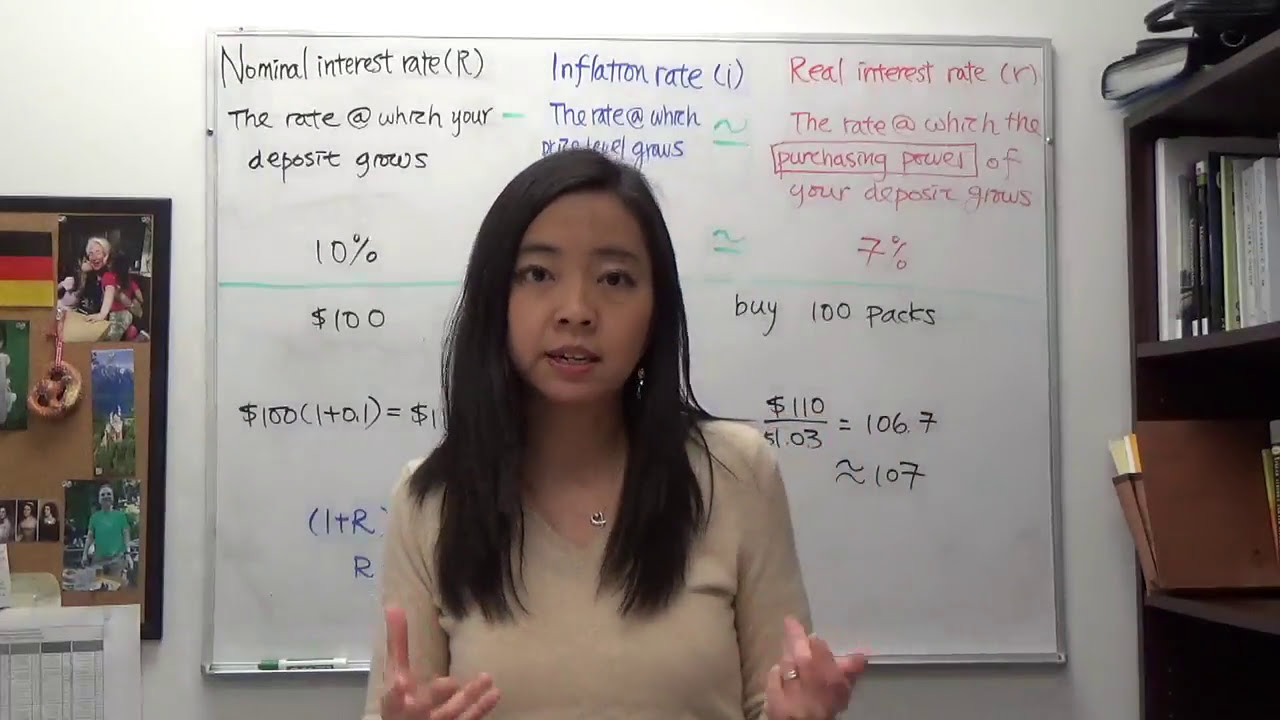 Nominal interest rate (R)
The rate @ which your
deposit grows
10%
$100
$100(1+0.1) = $11
(1+R)
R
–
Inflation rate (i)
The rate @ which
price level grows
≅
≅
Real interest rate (r)
The rate @ which the
purchasing power of
your deposit grows
7%
buy 100 packs
$110
$1.03
= 106.7
≈ 107